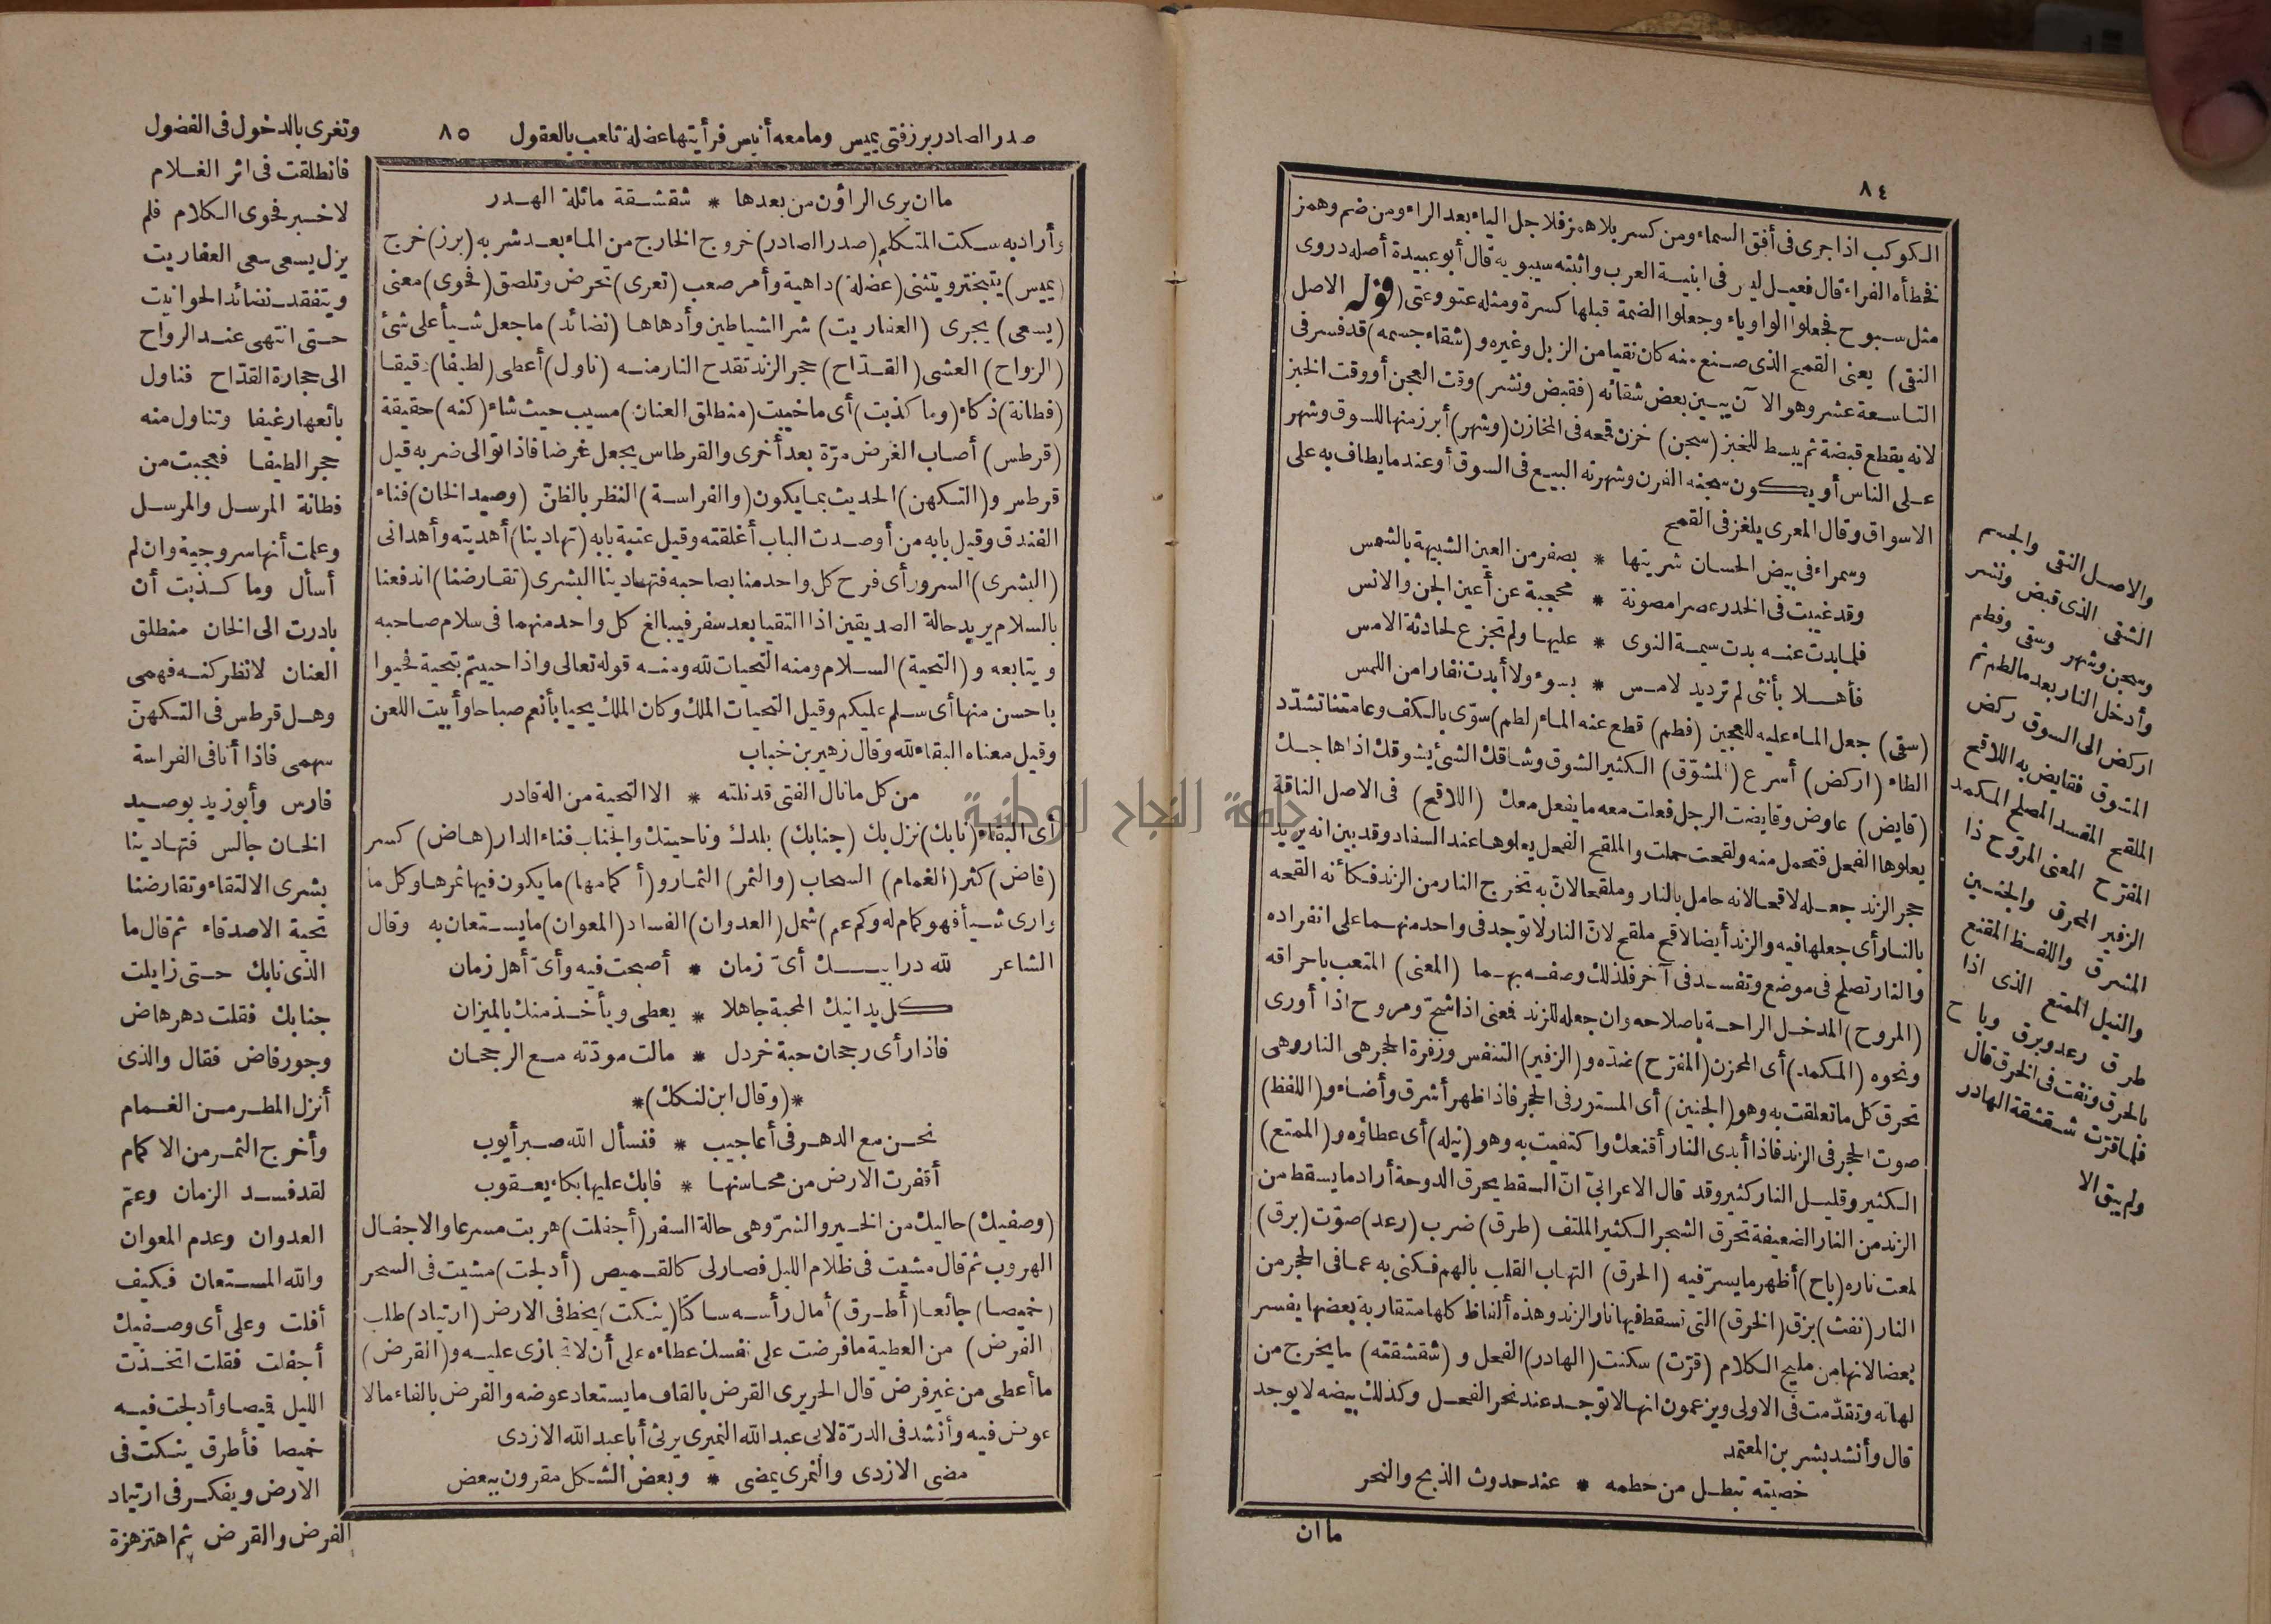 ٨٤
الكوكب اذا جرى فى أفق السماء ومن كسر بلا همز فلاجل الياء بعد الراء ومن ضم وهمز
فخطأه الفراء قال فعيل ليس فى ابنية العرب واثبته سيبويه قال أبو عبيدة أصله دروى
مثل سبوح فجعلوا الواو ياء وجعلوا الضمة قبلها كسرة ومثله عتو وعتى (قوله الاصل
النقى) يعنى القمح الذى صنع منه كان نقيا من الزبل وغيره و(شقاء جسمه) قد فسر فى
التاسعة عشر وهو الآن يبين بعض شقائه (فقبض ونشر) وقت العجن أو وقت الخبز
لانه يقطع قبضة ثم يبسط للخبز (سجن) خزن قمحه فى المخازن (وشهر) أبرز منها للسوق وشهر
على الناس أو يكون سجنه الفرن وشهرته البيع فى السوق أو عندما يطاف به على
الاسواق وقال المعرى يلغز فى القمح
وسمراء فى بيض الحسان شريتها * بصفر من العين الشبيهة بالشمس
وقد غيبت فى الخدر عصرا مصونة * محجبة عن أعين الجن والانس
فلما بدت عنه بدت سيمة النوى * عليها ولم تجزع لحادثة الامس
فأهلا بأنثى لم ترد يد لامس * بسوء ولا أبدت نفارا من اللمس
(سقى) جعل الماء عليه للعجين (فطم) قطع عنه الماء (لطم) سوّى بالكف وعامتنا تشدّد
الطاء (اركض) أسرع (المشوّق) الكثير الشوق وشاقك الشئ يشوقك اذا هاجك
(قايض) عاوض وقايضت الرجل فعلت معه ما يفعل معك (اللاقح) فى الاصل الناقة
يعلوها الفحل فتحمل منه ولقحت حملت والملقح الفحل يعلوها عند السفاد وقد بين انه يريد
حجر الزند جعله لاقحا لانه حامل بالنار وملقحا لان به تخرج النار من الزند فكأنه القحه
بالنار أى جعلها فيه والزند أيضا لاقح ملقح لانّ النار لا توجد فى واحد منهما على انفراده
والنار تصلح فى موضع وتفسد فى آخر فلذلك وصفه بهما (المعنى) المتعب باحراقه
(المروح) المدخل الراحة باصلاحه وان جعله للزند فمعنى اذا شحّ ومروح اذا أورى
ونحوه (المكمد) أى المحزن (المفرح) ضدّه و(الزفير) التنفس وزفرة الحجر هى النار وهى
تحرق كل ما تعلقت به وهو (الجنين) أى المستور فى الحجر فاذا ظهر أشرق وأضاء و(اللفظ)
صوت الحجر فى الزند فاذا أبدى النار أقنعك واكتفيت به وهو (نيله) أى عطاؤه و(الممتع)
الكثير وقليل النار كثير وقد قال الاعرابىّ انّ السقط يحرق الدوحة أراد ما يسقط من
الزند من النار الضعيفة تحرق الشجر الكثير الملتف (طرق) ضرب (رعد) صوّت (برق)
لمعت ناره (باح) أظهر ما يسرّ فيه (الحرق) التهاب القلب بالهم فكنى به عما فى الحجر من
النار (نفث) بزق (الخرق) التى تسقط فيها نار الزند وهذه ألفاظ كلها متقاربة بعضها يفسر
بعضا لانها من مليح الكلام (قرّت) سكنت (الهادر) الفحل و(شقشقته) ما يخرج من
لهاته وتقدّمت فى الاولى ويزعمون انها لا توجد عند نحر الفحل وكذلك بيضه لا يوجد
قال وأنشد بشر بن المعتمد
خصيته تبطل من خطمه * عند حدوث الذبح والنحر
ما ان
والاصل النقى والجسم
الشقى الذى قبض ونشر
وسجن وشهر وسقى وفطم
وأدخل النار بعد ما لطم ثم
اركض الى السوق ركض
المشوق فقايض به اللاقح
الملقح المفسد المصلح المكمد
المفرح المعنى المروح ذا
الزفير المحرق والجنين
المشرق واللفظ المقنع
والنيل الممتع الذى اذا
طرق رعد وبرق وباح
بالحرق ونفث فى الخرق قال
فلما قرّت شقشقة الهادر
ولم يبق الا
صدر الصادر برز فتى يميس وما معه أنيس فرأيتها عضلة تلعب بالعقول ٨٥
ما ان يرى الراؤن من بعدها * شقشقة ماثلة الهدر
وأراد به سكت المتكلم (صدر الصادر) خروج الخارج من الماء بعد شربه (برز) خرج
(يميس) يتبختر ويتثنى (عضلة) داهية وأمر صعب (تعرى) تحرض وتلصق (فحوى) معنى
(يسعى) يجرى (العفاريت) شر الشياطين وأدهاها (نضائد) ما جعل شيأ على شئ
(الرواح) العشى (القدّاح) حجر الزند تقدح النار منه (ناول) أعطى (لطيفا) رقيقا
(فطانة) ذكاء (وما كذبت) أى ما خيبت (منطلق العنان) مسيب حيث شاء (كنه) حقيقة
(قرطس) أصاب الغرض مرّة بعد أخرى والقرطاس يجعل غرضا فاذا توالى ضربه قيل
قرطس و(التكهن) الحديث بما يكون (والفراسة) النظر بالظنّ (وصيد الخان) فناء
الفندق وقيل بابه من أوصدت الباب أغلقته وقيل عتبة بابه (تهادينا) أهديته وأهدانى
(البشرى) السرور أى فرح كل واحد منا بصاحبه فتهادينا البشرى (تقارضنا) اندفعنا
بالسلام يريد حالة الصديقين اذا التقيا بعد سفر فيبالغ كل واحد منهما فى سلام صاحبه
ويتابعه و(التحية) السلام ومنه التحيات لله ومنه قوله تعالى واذا حييتم بتحية فحيوا
باحسن منها أى سلم عليكم وقيل التحيات الملك وكان الملك يحيا بأنعم صباحا وأبيت اللعن
وقيل معناه البقاء لله وقال زهير بن خباب
من كل ما نال الفتى قد نلته * الا التحية من اله قادر
أى البقاء (نابك) نزل بك (جنابك) بلدك وناحيتك والجناب فناء الدار (هاض) كسر
(فاض) كثر (الغمام) السحاب (والثمر) الثمار و(أكمامها) ما يكون فيها ثمرها وكل ما
وارى شيأ فهو كمام له وكم عم) شمل (العدوان) الفساد (المعوان) ما يستعان به وقال
الشاعر لله درابيك أىّ زمان * أصبحت فيه وأىّ أهل زمان
كل يدانيك المحبة جاهلا * يعطى ويأخذ منك بالميزان
فاذا رأى رجحان حبة خردل * مالت مودّته مع الرجحان
*(وقال ابن لنكك)*
نحن مع الدهر فى أعاجيب * فنسأل الله صبر أيوب
أقفرت الارض من محاسنها * فابك عليها بكاء يعقوب
(وصفيك) حاليك من الخير والشرّ وهى حالة السفر (أجفلت) هربت مسرعا والاجفال
الهروب ثم قال مشيت فى ظلام الليل فصار لى كالقميص (أدلجت) مشيت فى السحر
(خميصا) جائعا (أطرق) أمال رأسه ساكتا (ينكت) يخط فى الارض (ارتياد) طلب
(الفرض) من العطية ما فرضت على نفسك عطاءه على أن لا تجازى عليه و(القرض)
ما أعطى من غير فرض قال الحريرى القرض بالقاف ما يستعاد عوضه والفرض بالفاء ما لا
عوض فيه وأنشد فى الدرّة لابى عبد الله النميرى يرثى أبا عبد الله الازدى
مضى الازدى والنمرى يمضى * وبعض الشكل مقرون ببعض
وتغرى بالدخول فى الفضول
فانطلقت فى اثر الغلام
لاخبر فحوى الكلام فلم
يزل يسعى سعى العفاريت
ويتفقد نضائد الحوانيت
حتى انتهى عند الرواح
الى حجارة القدّاح فناول
بائعها رغيفا وتناول منه
حجرا لطيفا فعجبت من
فطانة المرسل والمرسل
وعلمت أنها سروجية وان لم
أسأل وما كذبت أن
بادرت الى الخان منطلق
العنان لانظر كنه فهمى
وهل قرطس فى التكهنّ
سهمى فاذا أنا فى الفراسة
فارس وأبو زيد بوصيد
الخان جالس فتهادينا
بشرى الالتقاء وتقارضنا
تحية الاصدقاء ثم قال ما
الذى نابك حتى زايلت
جنابك فقلت دهر هاض
وجور فاض فقال والذى
أنزل المطر من الغمام
وأخرج الثمر من الاكمام
لقد فسد الزمان وعمّ
العدوان وعدم المعوان
والله المستعان فكيف
أفلت وعلى أى وصفيك
أجفلت فقلت اتخذت
الليل قميصا وأدلجت فيه
خميصا فأطرق ينكت فى
الارض ويفكر فى ارتياد
الفرض والقرض ثم اهتز هزة
جامعة النجاح الوطنية